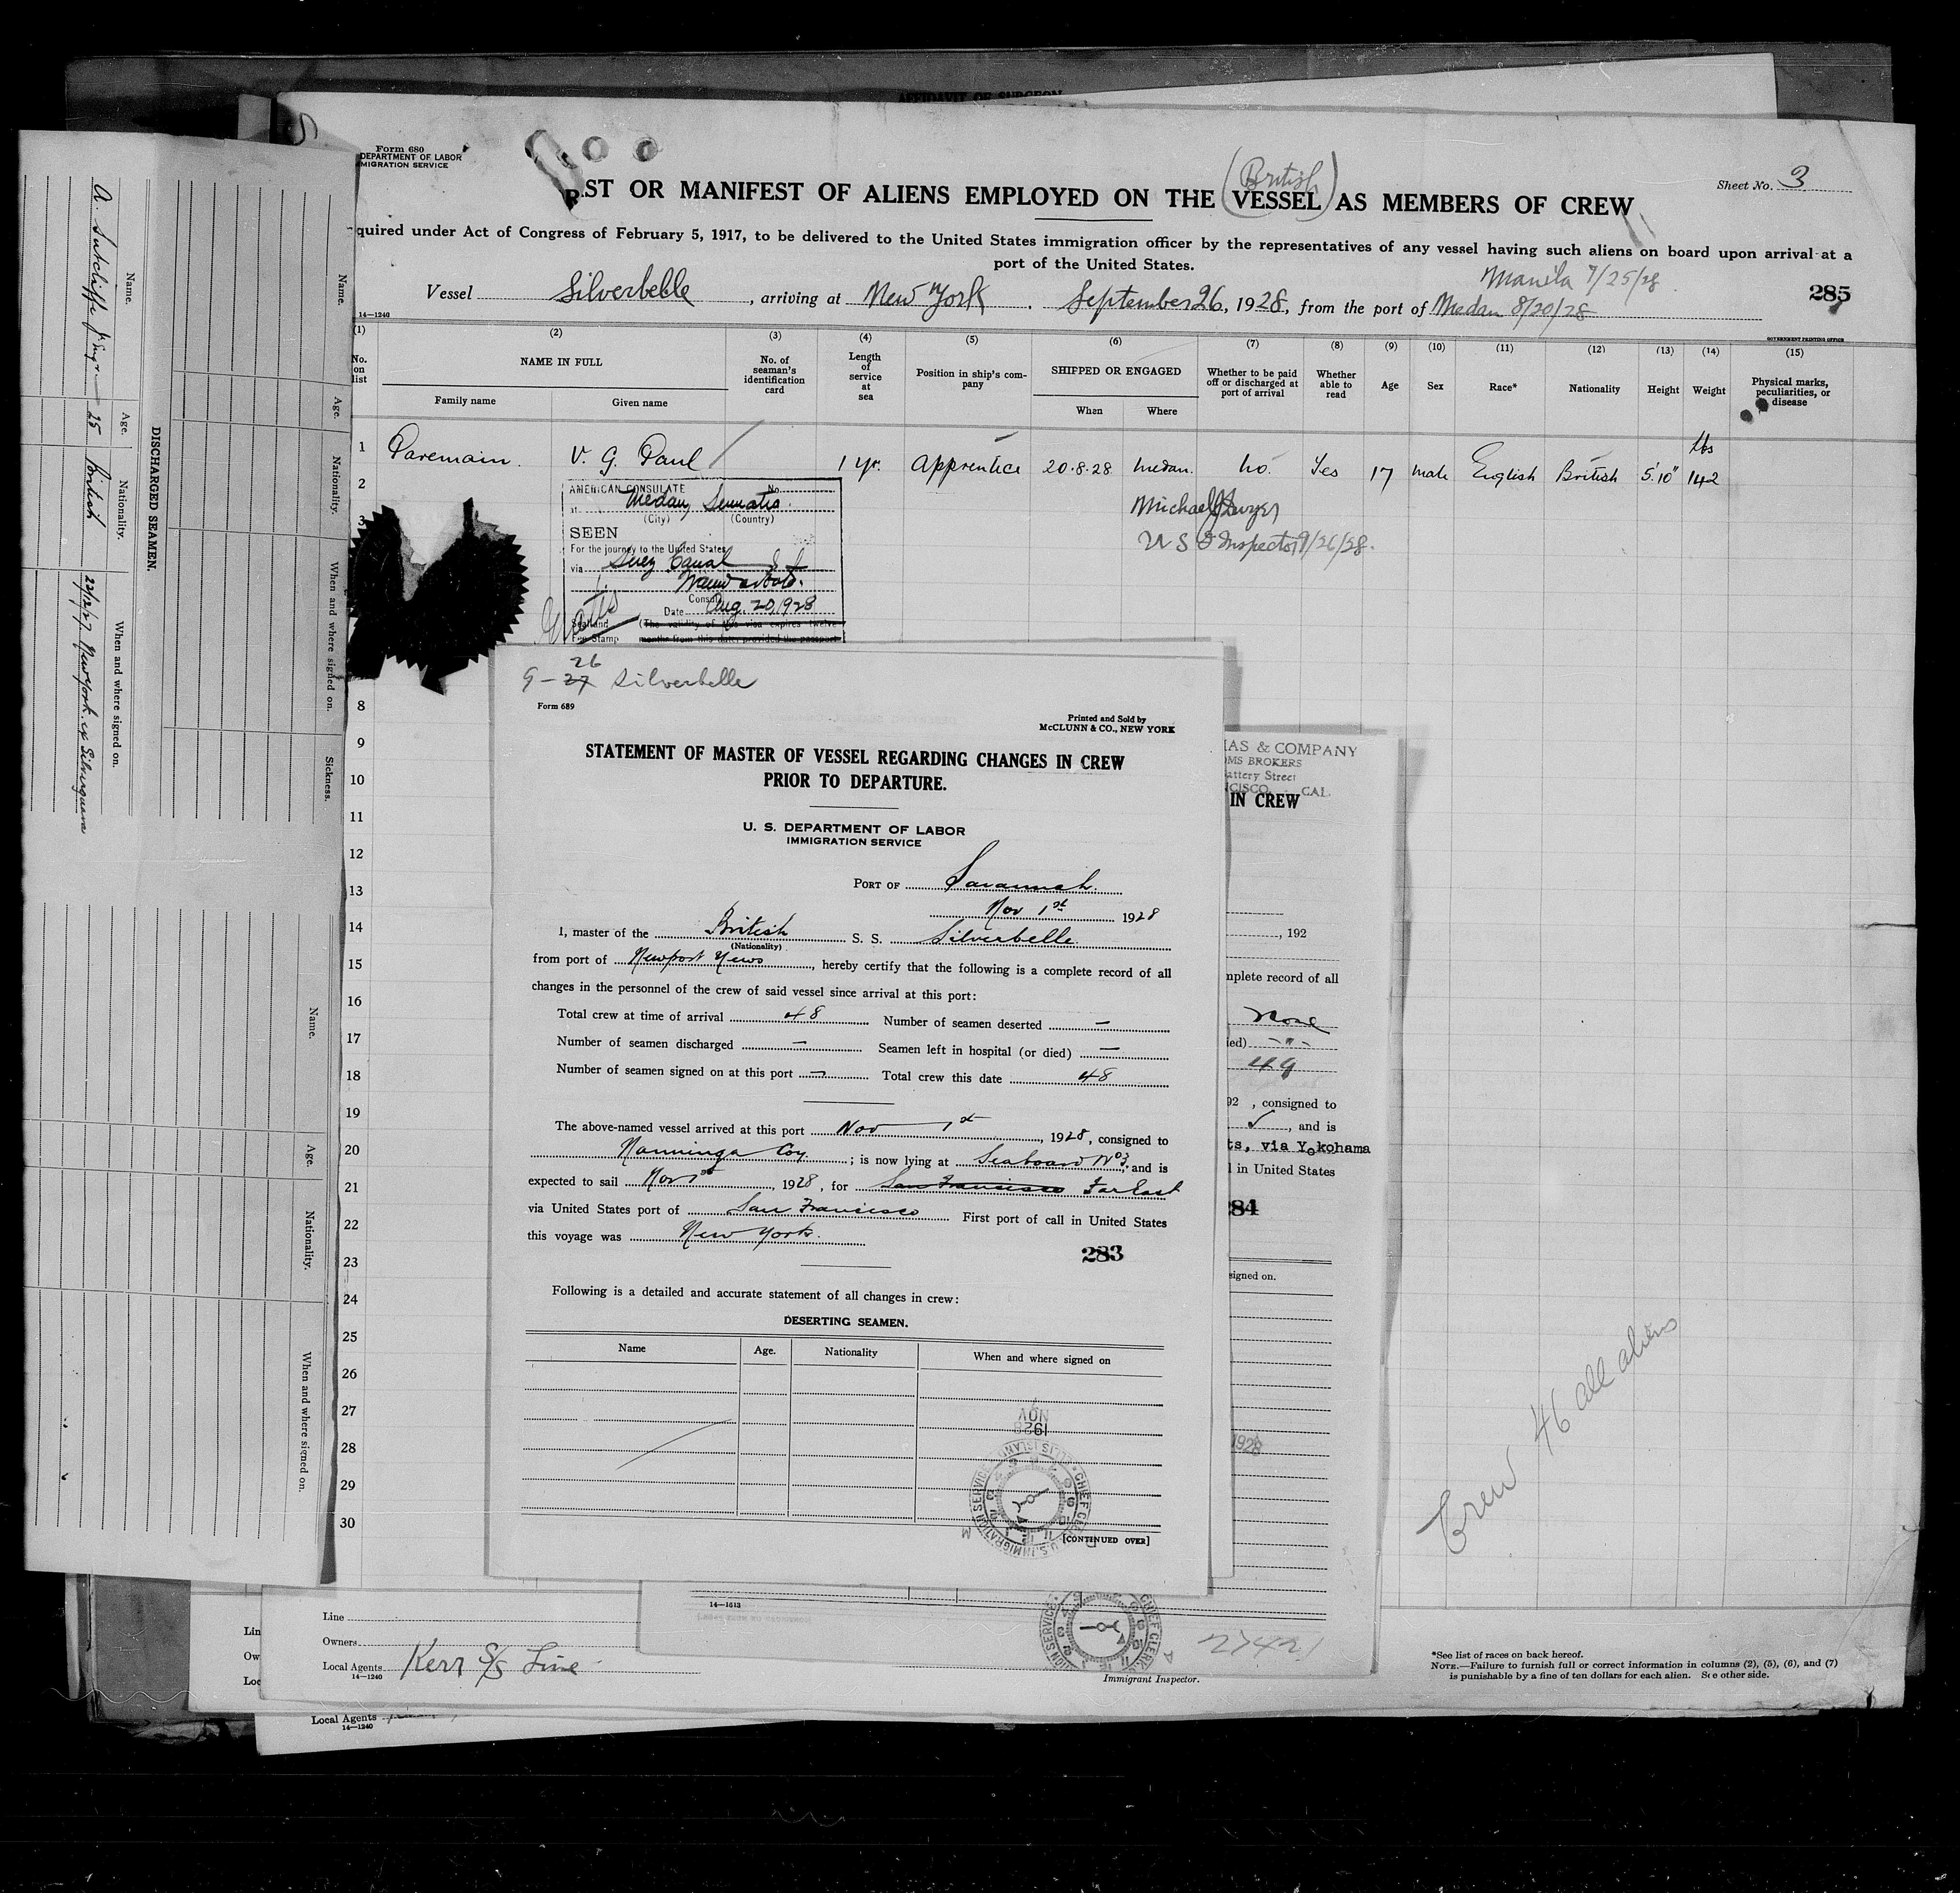 AFFIDAVIT OF SURGEON
Form 680
DEPARTMENT OF LABOR
MIGRATION SERVICE
(British)
Sheet No. 3
ST OR MANIFEST OF ALIENS EMPLOYED ON THE VESSEL AS MEMBERS OF CREW
quired under Act of Congress of February 5, 1917, to be delivered to the United States immigration officer by the representatives of any vessel having such aliens on board upon arrival at a
port of the United States.
Manila 7/25/28
Vessel Silverbelle, arriving at New York. September 26, 1928, from the port of Medan 8/20/28
285
14—1240
GOVERNMENT PRINTING OFFICE
(1) (2) (3) (4) (5) (6) (7) (8) (9) (10) (11) (12) (13) (14) (15)
No. on list
NAME IN FULL
Family name
Given name
No. of seaman's identification card
Length of service at sea
Position in ship's company
SHIPPED OR ENGAGED
When
Where
Whether to be paid off or discharged at port of arrival
Whether able to read
Age
Sex
Race*
Nationality
Height
Weight
Physical marks, peculiarities, or disease
lbs
1 Paremain. V. G. Paul 1 yr. Apprentice 20.8.28 Medan. No. Yes 17 Male English British 5'10" 142
2
3
AMERICAN CONSULATE No.
at Medan, Sumatra.
(City) (Country)
SEEN
For the journey to the United States
via Suez Canal
Consul
Date Aug. 20, 1928
Gratis
Fee Stamp
(The validity of this visa expires twelve
months from this date, provided the passport
Michael
U S Inspector 9/26/28.
8
9
10
11
12
13
14
15
16
17
18
19
20
21
22
23
24
25
26
27
28
29
30
9-27 26 Silverbelle
Form 689
Printed and Sold by
McCLUNN & CO., NEW YORK
STATEMENT OF MASTER OF VESSEL REGARDING CHANGES IN CREW
PRIOR TO DEPARTURE.
U. S. DEPARTMENT OF LABOR
IMMIGRATION SERVICE
PORT OF Savannah.
Nov 1st 1928
I, master of the British S. S. Silverbelle
(Nationality)
from port of Newport News, hereby certify that the following is a complete record of all
changes in the personnel of the crew of said vessel since arrival at this port:
Total crew at time of arrival 48 Number of seamen deserted —
Number of seamen discharged — Seamen left in hospital (or died) —
Number of seamen signed on at this port — Total crew this date 48
The above-named vessel arrived at this port Nov 1st, 1928, consigned to
Nanninga Coy; is now lying at Seaboard No 3, and is
expected to sail Nov 1st, 1928, for San Francisco Far East
via United States port of San Francisco First port of call in United States
this voyage was New York.
283
Following is a detailed and accurate statement of all changes in crew:
DESERTING SEAMEN.
Name Age. Nationality When and where signed on
NOV
1928
CHIEF CLERK U.S. IMMIGRATION SERVICE ELLIS ISLAND
[CONTINUED OVER]
& COMPANY
OMS BROKERS
attery Street
CISCO, CAL.
IN CREW
, 192
mplete record of all
None
ied) -"-
49
92 , consigned to
, and is
ts, via Yokohama
l in United States
284
signed on.
1928
14—1613
27421
Immigrant Inspector.
Crew 46 all aliens
*See list of races on back hereof.
NOTE.—Failure to furnish full or correct information in columns (2), (5), (6), and (7)
is punishable by a fine of ten dollars for each alien. See other side.
Line
Owners
Local Agents Kerr S/S Line
14—1240
Lin
Ow
Loc
Local Agents
14—1240
DISCHARGED SEAMEN.
Name. Age. Nationality. When and where signed on.
A. Sutcliffe Jr Engr. 25 British 22/12/27 New York. ex Silverguava
Name. Age. Nationality. When and where signed on. Sickness.
Name. Age. Nationality. When and where signed on.